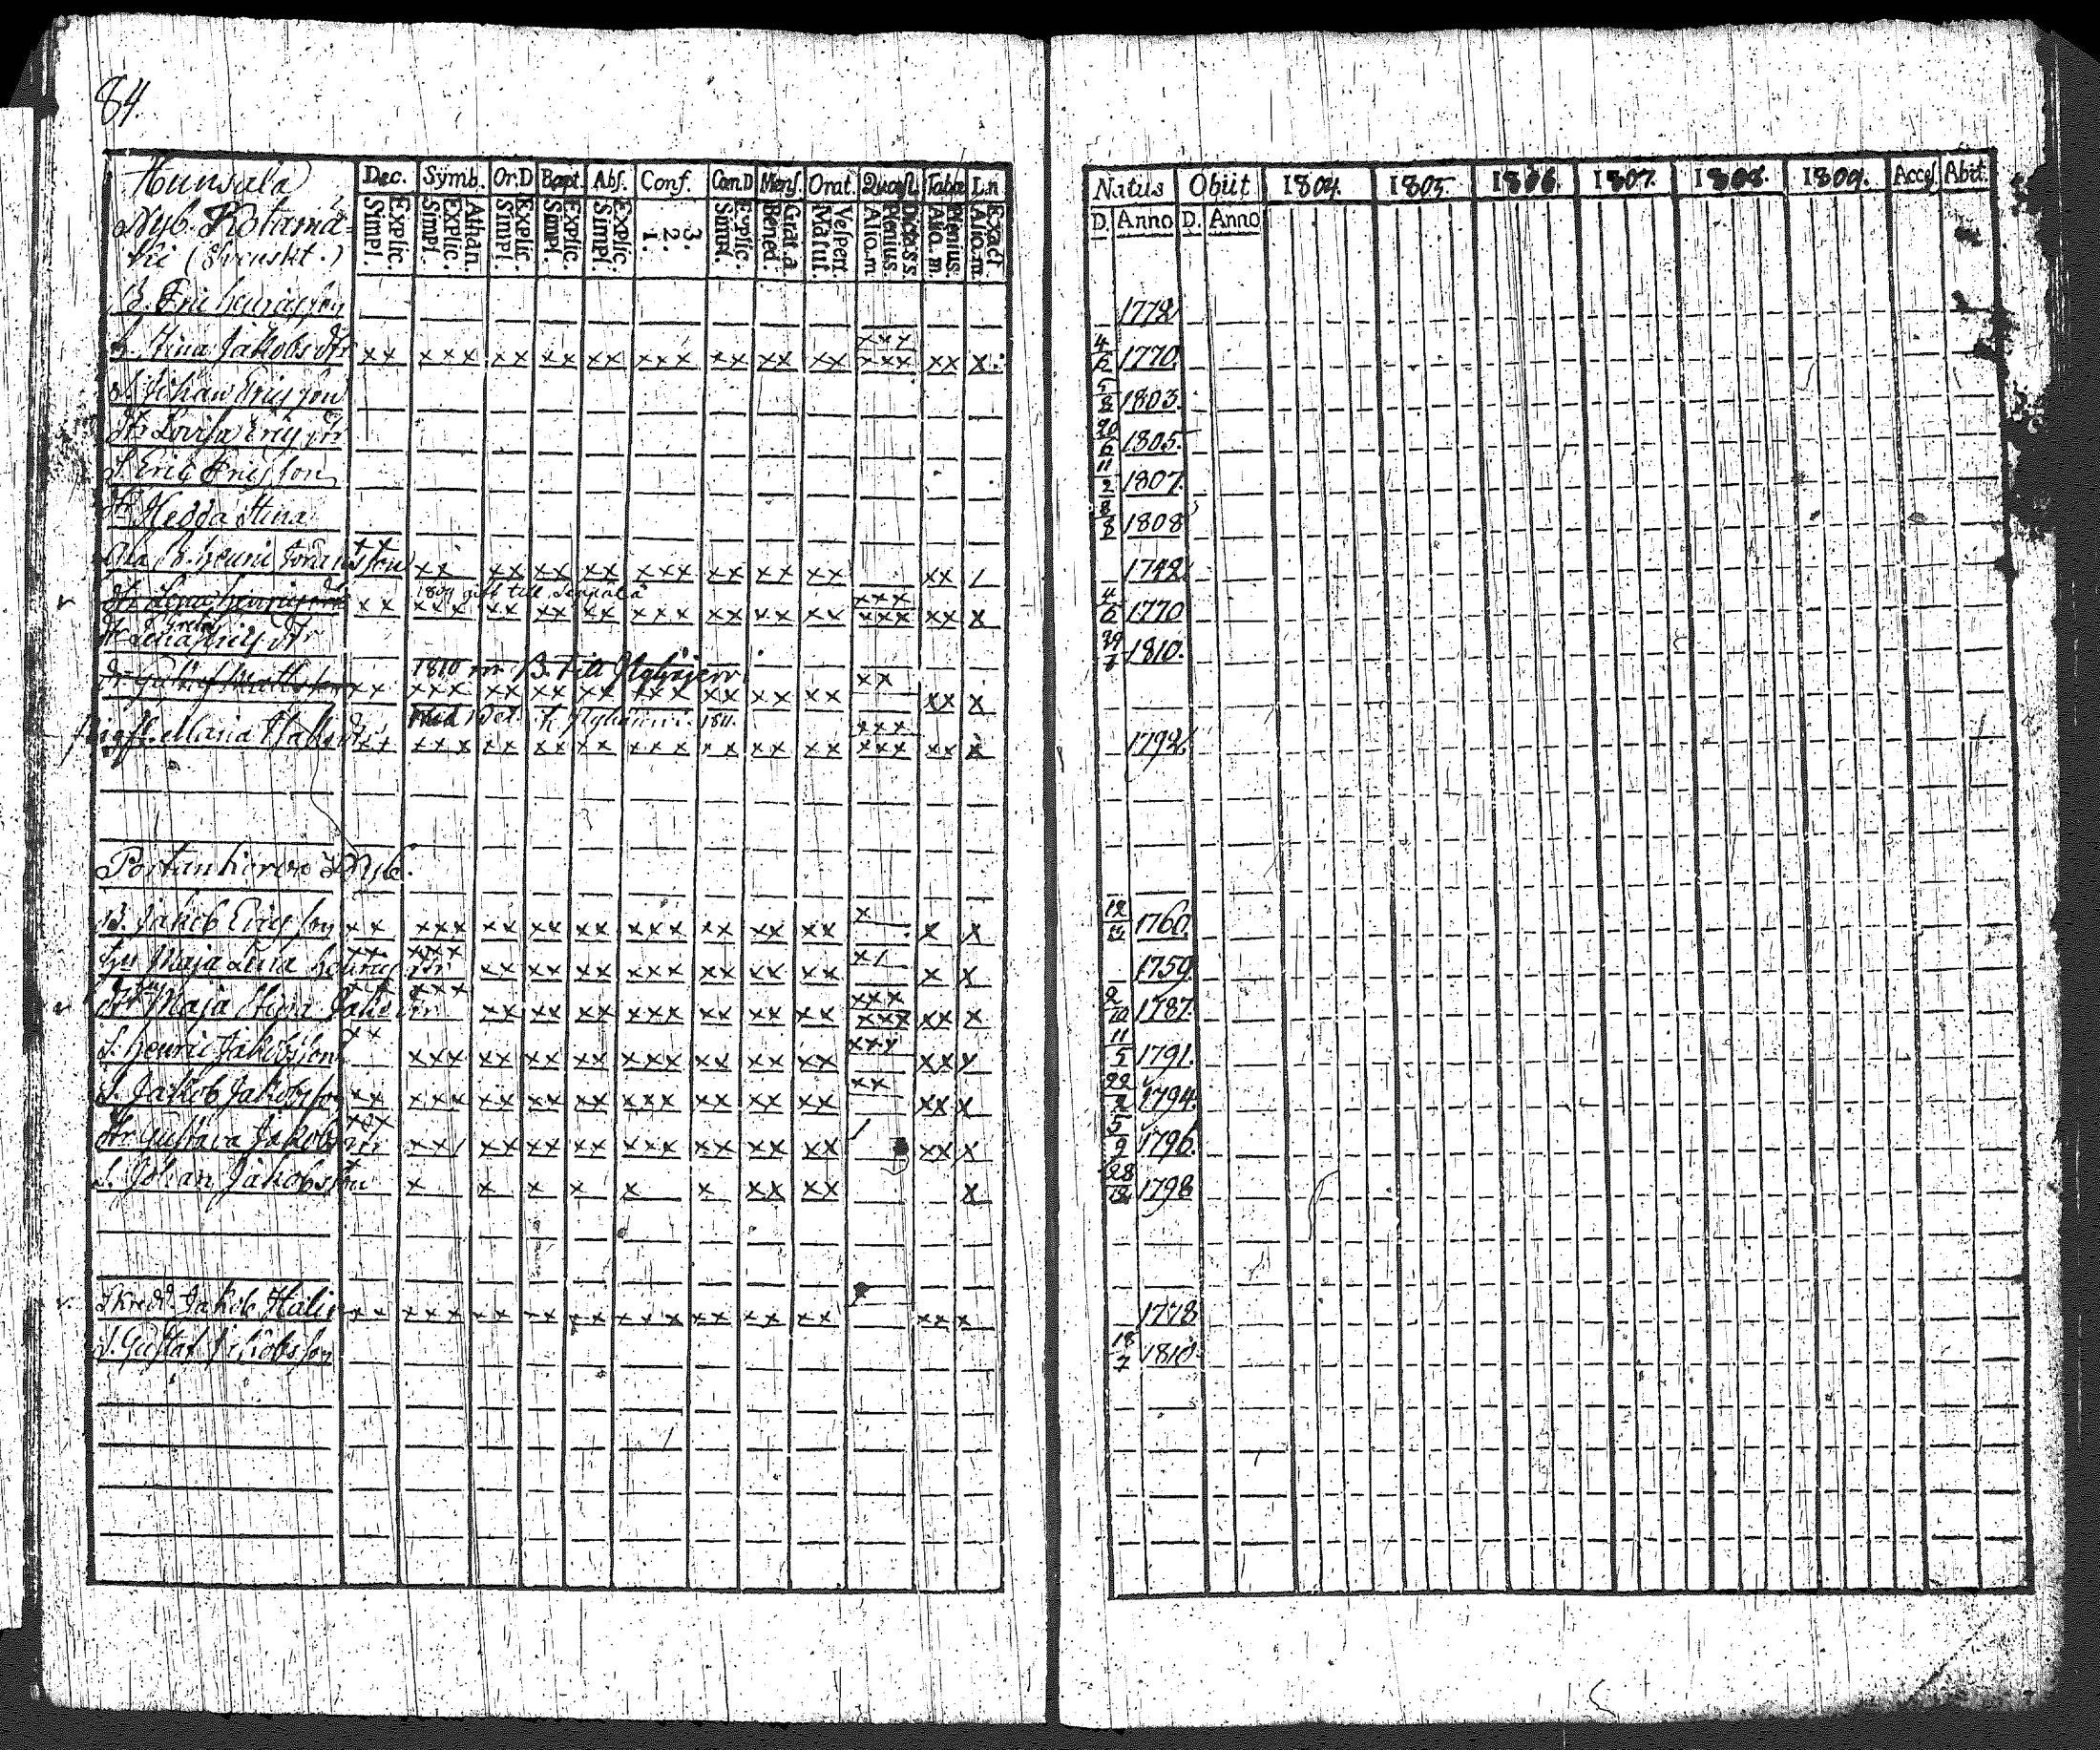 84.
Hunsala
Nyb. Kotamä-
ki (Svenskt.)
Dec. Symb. Or.D Bapt. Abs. Conf. Cœn.D Mens. Orat. Quæst. Taba L.n
Simpl. Explic. Simpl. Explic. Athan. Simpl. Explic. Simpl. Explic. Simpl. Explic. 1. 2. 3. Simpl. Explic. Bened. Grat.a Matut. Vesper. Alio.m. Plenius. Dicta s.s. Alio.m. Plenius. Alio.m. Exact.
Natus Obiit 1804. 1805. 1806. 1807. 1808. 1809. Access. Abit.
D. Anno D. Anno
B. Eric Henricsson 1778
h. Stina Jakobs dtr xx xxx xx xx xx xxx xx xx xx xxx xxx xx x 4/6 1770.
S. Johan Ericsson 5/8 1803.
dtr Lovisa Erics dtr 20/6 1805.
S. Eric Ericsson 11/2 1807.
dr Hedda Stina 8/8 1808
Gla B. Henric Johansson xx xx xx xx xx xxx xx xx xx xx / 1742.
dtr Lena Henrics dtr xx xxx xx xx xx xxx xx xx xx xxx xxx xx x 4/6 1770
1809 gift till
dtr Lena Greta Erics dtr 29/7 1810.
1810 B. till
dr Gustaf Mattsson xx xxx xx xx xx xxx xx xx xx xx xx x
1811.
Maria xx xxx xx xx xx xxx xx xx xx xxx xxx xx x 1792.
Portankorva Nyb.
B. Jakob Ericsson xx xxx xx xx xx xxx xx xx xx x x x 12/12 1760.
hu Maja Lena Henrics dtr xx xxx xx xx xx xxx xx xx xx x/ x x 1759.
dtr Maja Stina Jakobs dtr xxx xxx xx xx xx xxx xx xx xx xxx xxx xx x 2/10 1787.
S. Henric Jakobsson xx xxx xx xx xx xxx xx xx xx xxx xx x 11/5 1791.
S. Jakob Jakobsson xx xxx xx xx xx xxx xx xx xx xx xx x 22/2 1794.
dtr Gustava Jakobs dtr xxx xx/ xx xx xx xxx xx xx xx / xx x 5/9 1796.
S. Johan Jakobsson x x x x x x x xx xx x 28/12 1798
Skredd. Jakob Hali xx xxx xx xx xx xxx xx xx xx xx x 1778
S. Gustaf Jakobsson 18/7 1810.